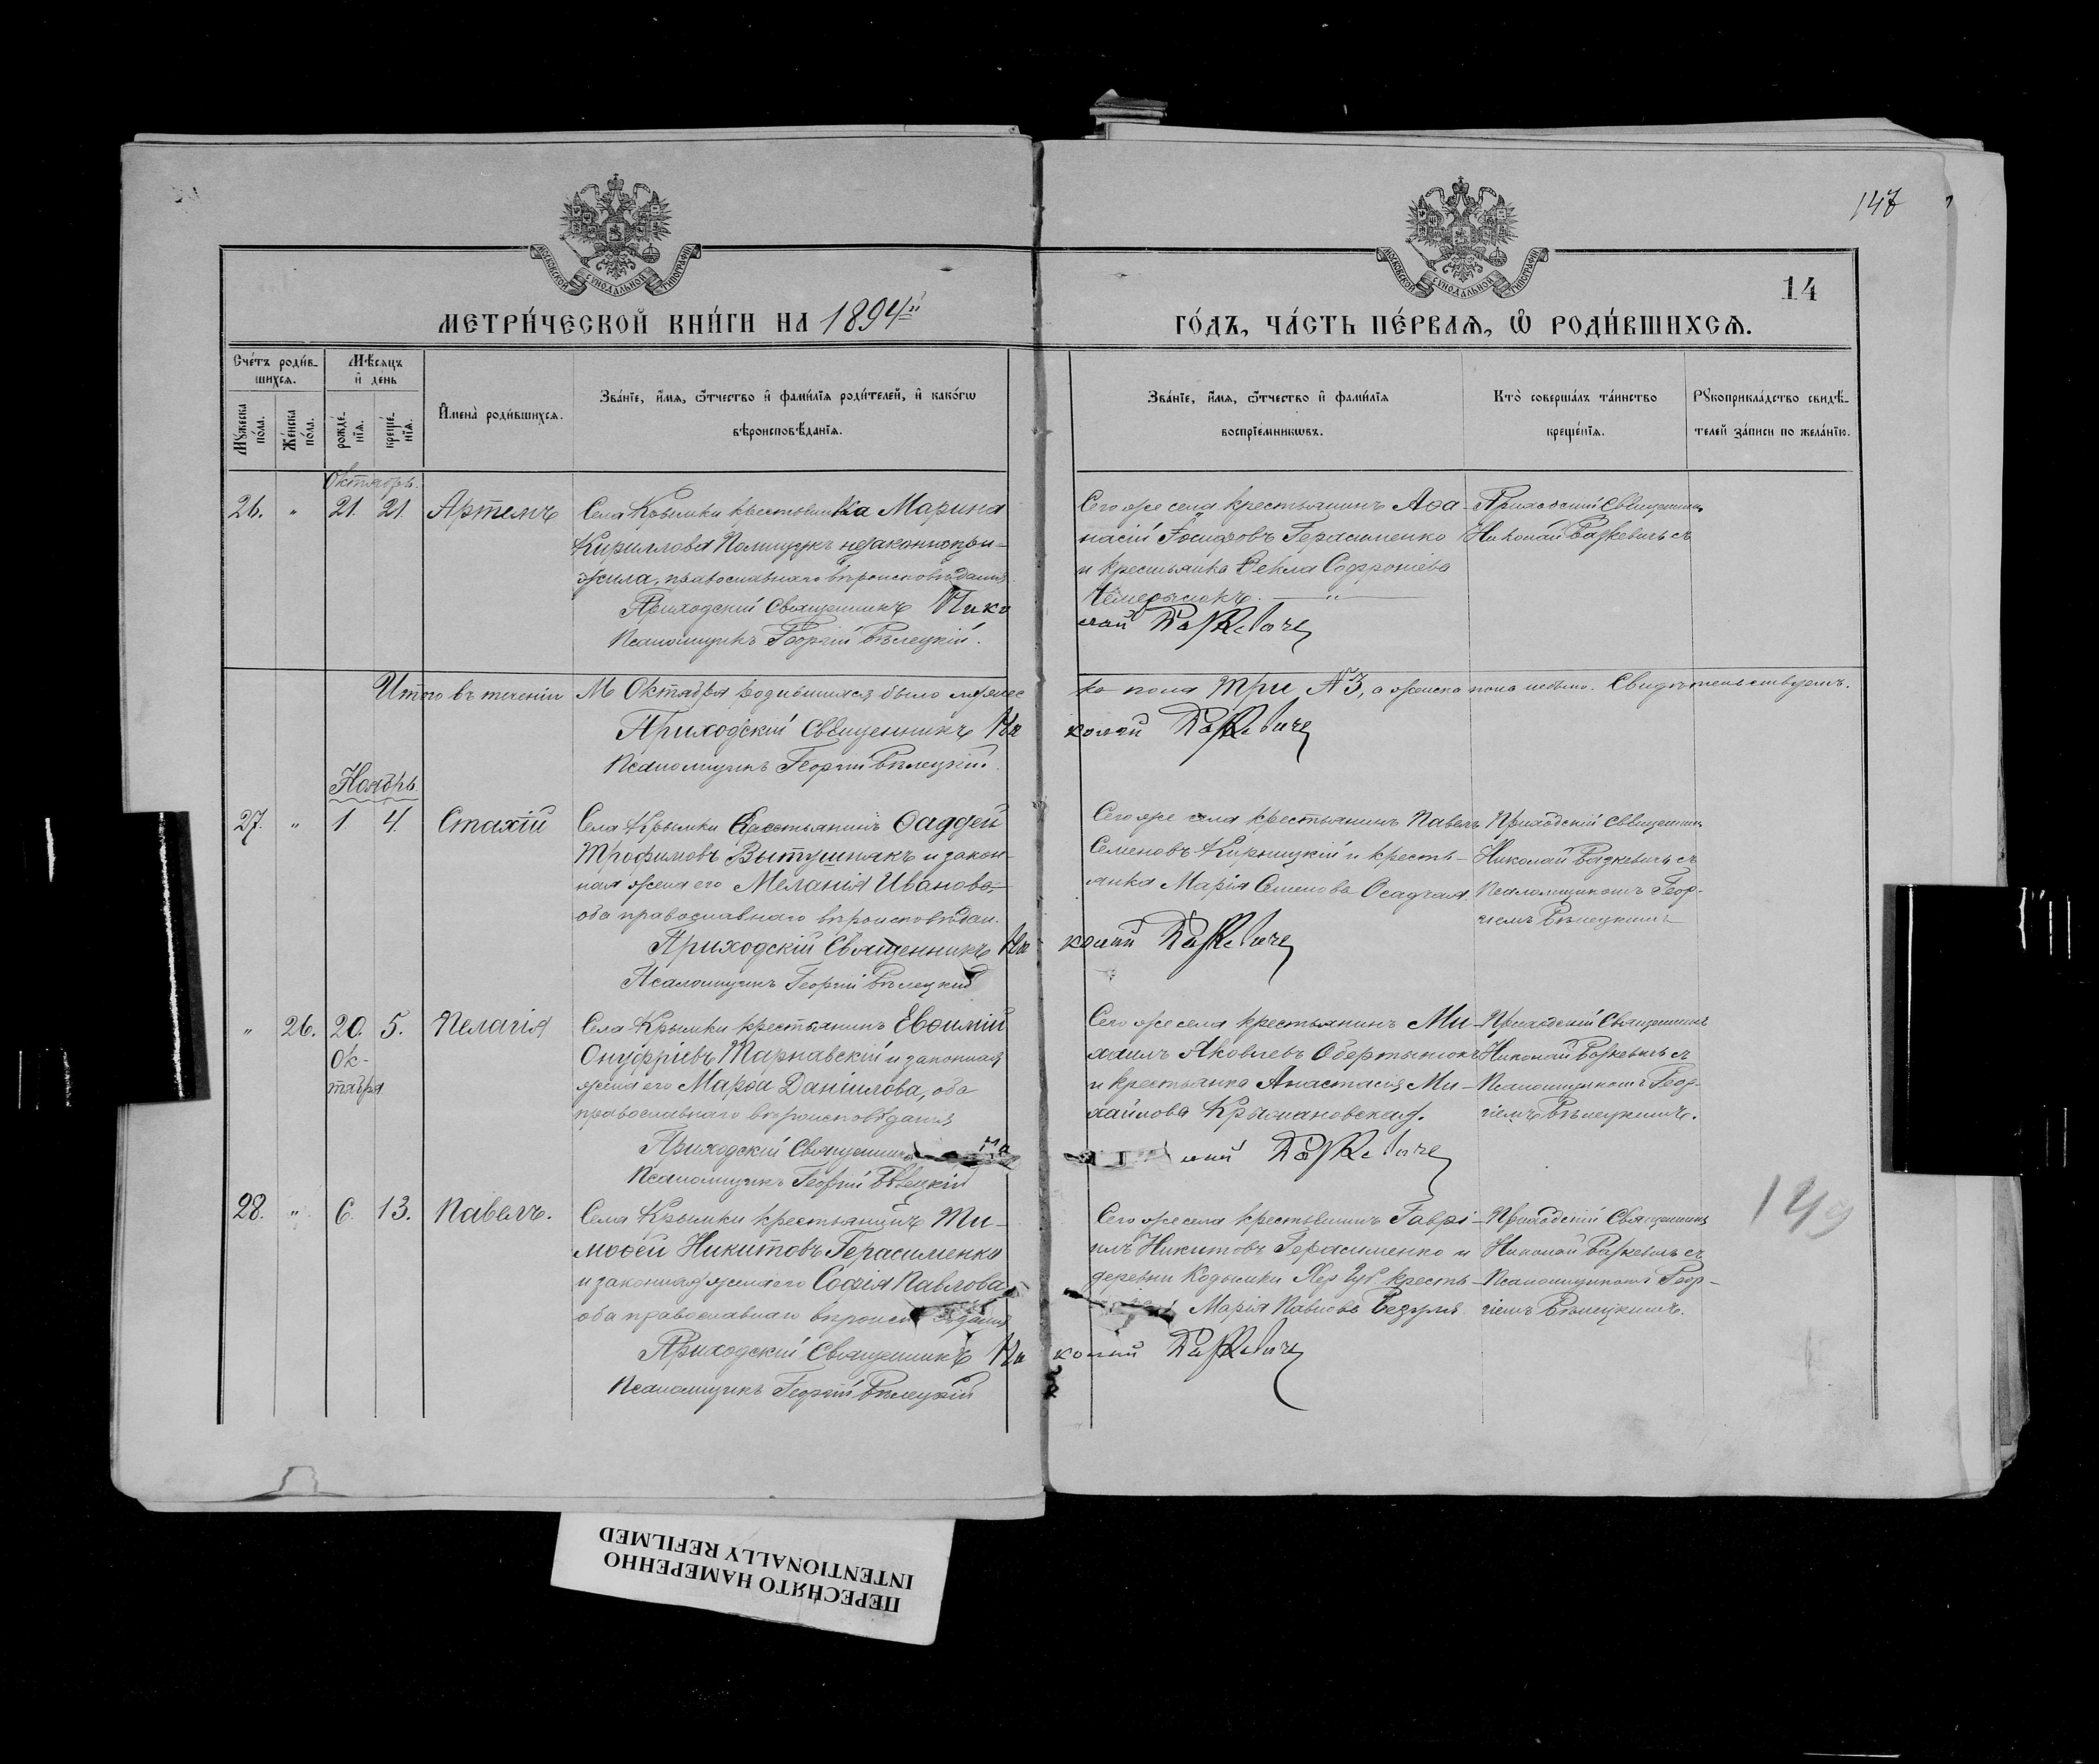 147
МОСКОВСКОЙ СѴНОДАЛЬНОЙ ТИПОГРАФІИ
МОСКОВСКОЙ СѴНОДАЛЬНОЙ ТИПОГРАФІИ
14
МЕТРИ́ЧЕСКОЙ КНИ́ГИ НА 1894й
ГО́ДЪ, ЧА́СТЬ ПЕ́РВАѦ, Ѽ РОДИ́ВШИХСѦ.
Сче́тъ роди́вшихсѧ.
Мꙋ́жеска по́ла.
Же́нска по́ла.
Мѣ́сѧцъ и҆ де́нь
рожде́нїѧ.
креще́нїѧ.
И҆мена̀ роди́вшихсѧ.
Зва́нїе, и҆́мѧ, ѻ҆́тчество и҆ фами́лїѧ роди́телей, и҆ како́гѡ
вѣроисповѣ́данїѧ.
Зва́нїе, и҆́мѧ, ѻ҆́тчество и҆ фами́лїѧ
воспрїе́мникѡвъ.
Кто̀ соверша́лъ та́инство
креще́нїѧ.
Рꙋкоприкла́дство свидѣ́телей за́писи по жела́нїю.
Октябрь.
26. " 21. 21. Артемъ
Села Крымки крестьянка Марина
Кириллова Полищукъ незаконноприжила, православнаго вѣроисповѣданія.
Приходскій Священникъ Николай
Псаломщикъ Георгій Бѣлецкій.
Сего же села крестьянинъ Аѳанасій Іосифовъ Герасименко
и крестьянка Ѳекла Софроніева
Приходскій Священникъ
Николай съ
Итого въ теченіи М Октября родившихся было мужеска пола три № 3, а женска пола небыло. Свидѣтельствуемъ.
Приходскій Священникъ Николай
Псаломщикъ Георгій Бѣлецкій.
Ноябрь.
27. " 1 4. Стахій
Села Крымки Крестьянинъ Ѳаддей
Трофимовъ Вытушнякъ и законная жена его Меланія Иванова,
оба православнаго вѣроисповѣдан.
Приходскій Священникъ Николай
Псаломщикъ Георгій Бѣлецкій
Сего же села крестьянинъ Павелъ
Семеновъ и крестьянка Марія Семенова Осадчая.
Приходскій Священникъ
Николай съ
Псаломщикомъ Георгіемъ Бѣлецкимъ
" 26. 20. Октября 5. Пелагія
Села Крымки крестьянинъ Евѳимій
Онуфріевъ Тарнавскій и законная
жена его Марѳа Даніилова, оба
православнаго вѣроисповѣданія
Приходскій Священникъ
Псаломщикъ Георгій Бѣлецкій
Сего же села крестьянинъ Михаилъ Яковлевъ Обертынюкъ
и крестьянка Анастасія Михайлова Крыжановская.
Приходскій Священникъ
Николай съ
Псаломщикомъ Георгіемъ Бѣлецкимъ.
28. " 6. 13. Павелъ.
Села Крымки крестьянинъ Тимоѳей Никитовъ Герасименко
и законная жена его Софія Павлова
оба православнаго
Приходскій Священникъ Николай
Псаломщикъ Георгій Бѣлецкій
Сего же села крестьянинъ Гавріилъ Никитовъ Герасименко и
деревни Кодымки Хер Губ кресть-
Марія Павлова
Приходскій Священникъ
Николай съ
Псаломщикомъ Георгіемъ Бѣлецкимъ.
149
ПЕРЕСНЯТО НАМЕРЕННО
INTENTIONALLY REFILMED